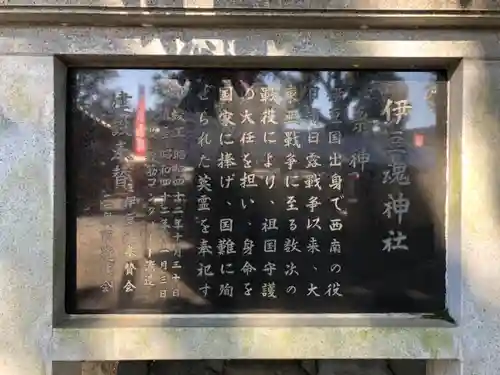 伊豆魂神社
祭神
豆国出身で西南の役
日露戦争以来、大
東亜戦争に至る数次の
戦役により、祖国守護
の大任を担い、身命を
国家に捧げ、国難に殉
じられた英霊を奉祀す
竣工 昭和四十二年十月三十日
昭和四十二年十一月三日
建設奉賛
奉賛会